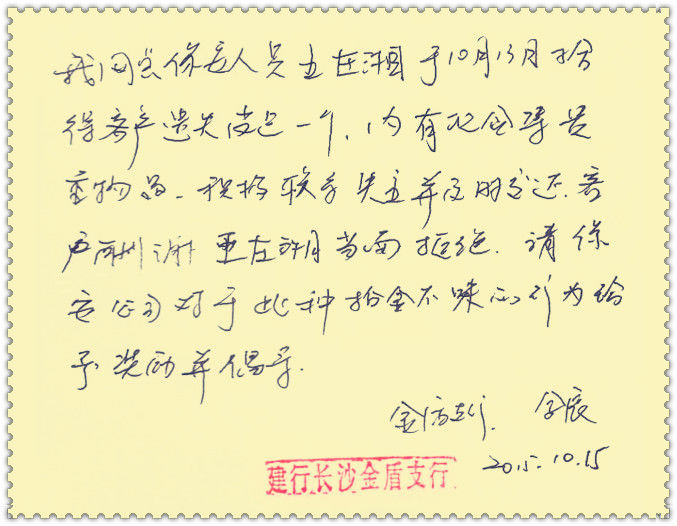 我网点保安人员王在湘于10月13日拾
得客户遗失皮包一个，内有现金等贵
重物品。积极联系失主并及时归还，客
户酬谢 王在湘当面拒绝。请保
安公司对于此种拾金不昧的行为给
予奖励并倡导。
金盾支行
2015.10.15
建行长沙金盾支行